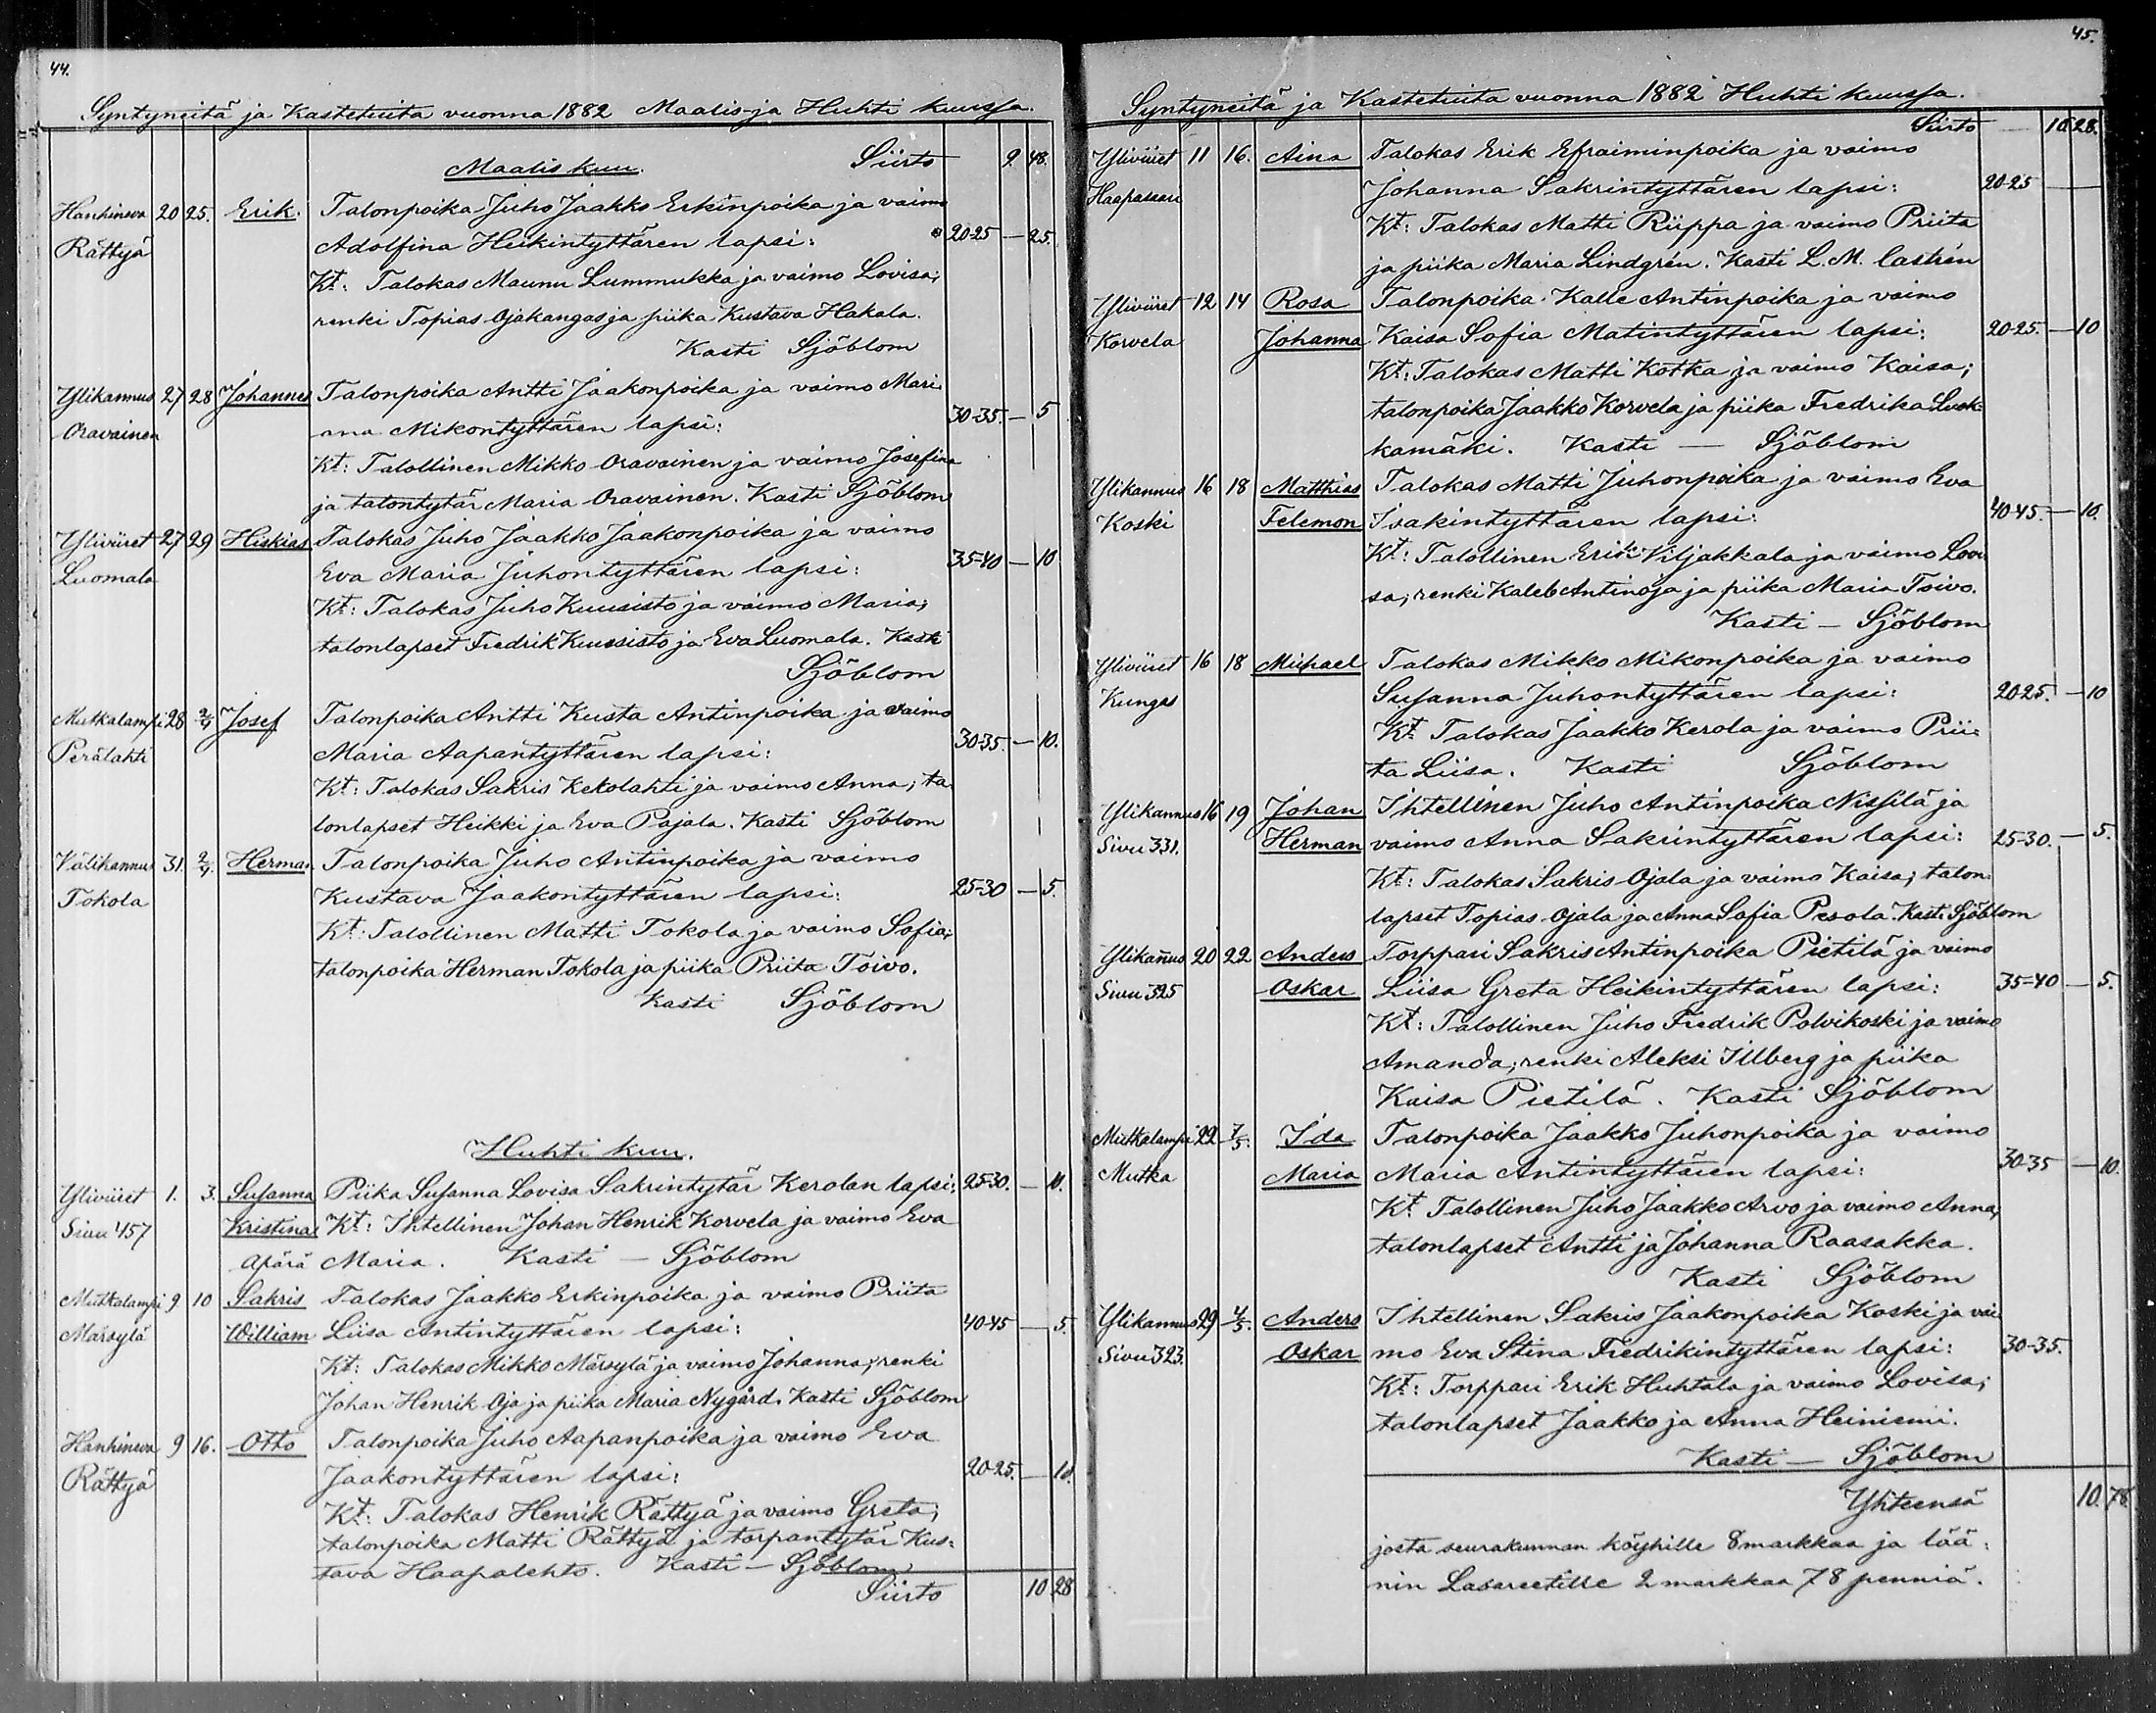 44.
Syntyneitä ja Kastetuita vuonna 1882 Maalis-ja Huhti kuussa.
Maalis kuu. Siirto 9. 48.
Hanhineva 20 25. Erik. Talonpoika Juho Jaakko Erkinpoika ja vaimo
Rättyä Adolfina Heikintyttären lapsi: 20-25 — 25.
Kt: Talokas Maunu Lummukka ja vaimo Lovisa;
renki Topias Ojakangas ja piika Kustava Hakala.
Kasti Sjöblom
Ylikannus 27 28 Johannes Talonpoika Antti Jaakonpoika ja vaimo Mari-
Oravainen anna Mikontyttären lapsi: 30-35. — 5
Kt: Talollinen Mikko Oravainen ja vaimo Josefina
ja talontytär Maria Oravainen. Kasti Sjöblom
Yliviiret 27 29 Hiskias Talokas Juho Jaakko Jaakonpoika ja vaimo
Luomala Eva Maria Juhontyttären lapsi: 35-40 — 10
Kt: Talokas Juho Kuusisto ja vaimo Maria;
talonlapset Fredrik Kuusisto ja Eva Luomala. Kasti
Sjöblom
Mutkalampi 28 2/4 Josef Talonpoika Antti Kusta Antinpoika ja vaimo
Perälahti Maria Aapantyttären lapsi: 30-35. — 10.
Kt: Talokas Sakris Kekolahti ja vaimo Anna; ta-
lonlapset Heikki ja Eva Pajala. Kasti Sjöblom
Välikannus 31. 2/4. Herman Talonpoika Juho Antinpoika ja vaimo
Tokola Kustava Jaakontyttären lapsi: 25-30 — 5.
Kt: Talollinen Matti Tokola ja vaimo Sofia;
talonpoika Herman Tokola ja piika Priita Toivo.
Kasti Sjöblom
Huhti kuu.
Yliviiret 1. 3. Susanna Piika Susanna Lovisa Sakrintytär Kerolan lapsi: 25-30. —
Sivu 457 Kristina Kt: Ihtellinen Johan Henrik Korvela ja vaimo Eva
Äpärä Maria. Kasti — Sjöblom
Mutkalampi 9 10 Sakris Talokas Jaakko Erkinpoika ja vaimo Priita
Märsylä William Liisa Antintyttären lapsi: 40-45 — 5.
Kt: Talokas Mikko Märsylä ja vaimo Johanna; renki
Johan Henrik Oja ja piika Maria Nygård. Kasti Sjöblom
Hanhineva 9 16. Otto Talonpoika Juho Aapanpoika ja vaimo Eva
Rättyä Jaakontyttären lapsi: 20-25. — 10.
Kt: Talokas Henrik Rättyä ja vaimo Greta;
talonpoika Matti Rättyä ja torpantytär Kus-
tava Haapalehto. Kasti — Sjöblom
Siirto 10 28
45.
Syntyneitä ja Kastetuita vuonna 1882 Huhti kuussa.
Siirto 10 28.
Yliviiret 11 16. Aina Talokas Erik Efraiminpoika ja vaimo
Haapasaari Johanna Sakrintyttären lapsi: 20-25 —
Kt: Talokas Matti Riippa ja vaimo Priita
ja piika Maria Lindgrén. Kasti L. M. Castrén
Yliviiret 12 14 Rosa Talonpoika Kalle Antinpoika ja vaimo
Korvela Johanna Kaisa Sofia Matintyttären lapsi: 20-25. — 10
Kt: Talokas Matti Kotka ja vaimo Kaisa;
talonpoika Jaakko Korvela ja piika Fredrika Luok-
kamäki. Kasti — Sjöblom
Ylikannus 16 18 Matthias Talokas Matti Juhonpoika ja vaimo Eva
Koski Felemon Isakintyttären lapsi: 40-45. — 10.
Kt: Talollinen Erik Viljakkala ja vaimo Lovi-
sa; renki Kaleb Antinoja ja piika Maria Toivo.
Kasti — Sjöblom
Yliviiret 16 18 Michael Talokas Mikko Mikonpoika ja vaimo
Kungas Susanna Juhontyttären lapsi: 20-25. — 10
Kt: Talokas Jaakko Kerola ja vaimo Prii-
ta Liisa. Kasti Sjöblom
Ylikannus 16 19 Johan Ihtellinen Juho Antinpoika Nissilä ja
Sivu 331. Herman vaimo Anna Sakrintyttären lapsi: 25-30. — 5.
Kt: Talokas Sakris Ojala ja vaimo Kaisa; talon-
lapset Topias Ojala ja Anna Sofia Pesola. Kasti Sjöblom
Ylikan̄us 20 22 Anders Torppari Sakris Antinpoika Pietilä ja vaimo
Sivu 325 Oskar Liisa Greta Heikintyttären lapsi: 35-40 — 5.
Kt: Talollinen Juho Fredrik Polvikoski ja vaimo
Amanda; renki Aleksi Illberg ja piika
Kaisa Pietilä. Kasti Sjöblom
Mutkalampi 29 7/5. Ida Talonpoika Jaakko Juhonpoika ja vaimo
Mutka Maria Maria Antintyttären lapsi: 30-35 — 10.
Kt: Talollinen Juho Jaakko Arvo ja vaimo Anna;
talonlapset Antti ja Johanna Raasakka.
Kasti Sjöblom
Ylikannus 29 4/5. Anders Ihtellinen Sakris Jaakonpoika Koski ja vai-
Sivu 323. Oskar mo Eva Stina Fredrikintyttären lapsi: 30-35.
Kt: Torppari Erik Huhtala ja vaimo Lovisa;
talonlapset Jaakko ja Anna Heiniemi.
Kasti — Sjöblom
Yhteensä 10. 78
josta seurakunnan köyhille 8 markkaa ja lää-
nin Lasareetille 2 markkaa 78 penniä.